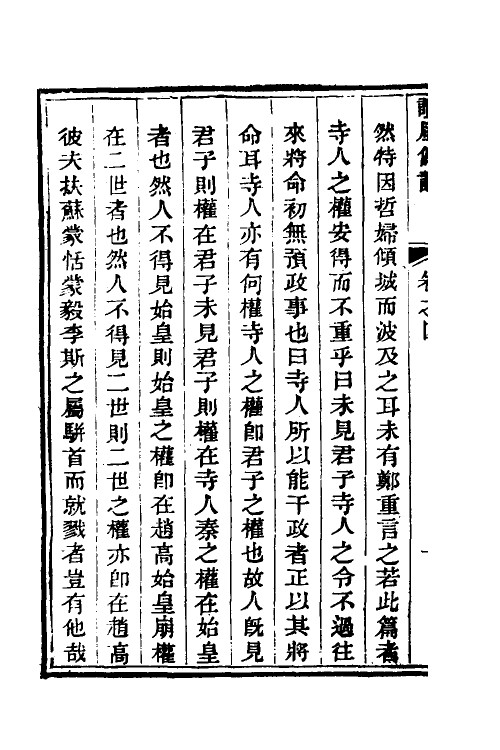 讀風偶識
卷之四
一
然特因哲婦傾城而波及之耳未有鄭重言之若此篇者
寺人之權安得而不重乎曰未見君子寺人之令不過往
來將命初無預政事也曰寺人所以能干政者正以其將
命耳寺人亦有何權寺人之權卽君子之權也故人旣見
君子則權在君子未見君子則權在寺人秦之權在始皇
者也然人不得見始皇則始皇之權卽在趙高始皇崩權
在二世者也然人不得見二世則二世之權亦卽在趙高
彼夫扶蘇蒙恬蒙毅李斯之屬駢首而就戮者豈有他哉